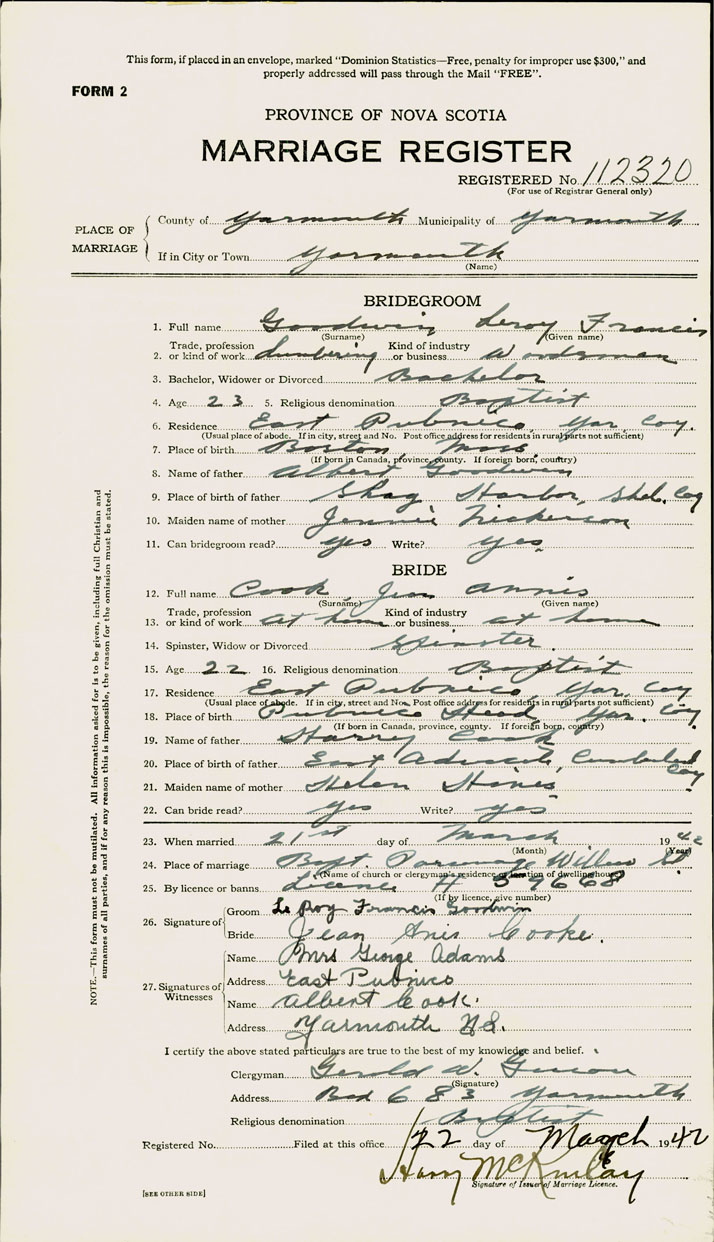 This form, if placed in an envelope, marked "Dominion Statistics—Free, penalty for improper use $300," and
properly addressed will pass through the Mail "FREE".
FORM 2
PROVINCE OF NOVA SCOTIA
MARRIAGE REGISTER
REGISTERED No. 112320
(For use of Registrar General only)
PLACE OF MARRIAGE
County of Yarmouth Municipality of Yarmouth
If in City or Town Yarmouth
(Name)
BRIDEGROOM
1. Full name Goodwin Leroy Francis
(Surname) (Given name)
2. Trade, profession or kind of work Lumbering Kind of industry or business Woodsman
3. Bachelor, Widower or Divorced Bachelor
4. Age 23 5. Religious denomination Baptist
6. Residence East Pubnico, Yar. Coy.
(Usual place of abode. If in city, street and No. Post office address for residents in rural parts not sufficient)
7. Place of birth Boston, Mass.
(If born in Canada, province, county. If foreign born, country)
8. Name of father Albert Goodwin
9. Place of birth of father Shag Harbor, Shel. Coy
10. Maiden name of mother Jennie Nickerson
11. Can bridegroom read? Yes Write? Yes
BRIDE
12. Full name Cook, Jean Annis
(Surname) (Given name)
13. Trade, profession or kind of work at home Kind of industry or business at home
14. Spinster, Widow or Divorced Spinster
15. Age 22 16. Religious denomination Baptist
17. Residence East Pubnico, Yar. Coy
(Usual place of abode. If in city, street and No. Post office address for residents in rural parts not sufficient)
18. Place of birth Pubnico Head, Yar. Coy.
(If born in Canada, province, county. If foreign born, country)
19. Name of father Harry Cook
20. Place of birth of father East Cumberland Coy
21. Maiden name of mother Helen Hines
22. Can bride read? Yes Write? Yes
23. When married 21st day of March 1942
(Month) (Year)
24. Place of marriage Bapt. Parsonage Willow St
(Name of church or clergyman's residence or location of dwelling house)
25. By licence or banns Licence H 59668
(If by licence, give number)
26. Signature of
Groom Le Roy Francis Goodwin
Bride Jean Anis Cooke.
27. Signatures of Witnesses
Name Mrs George Adams
Address East Pubnico
Name Albert Cook.
Address Yarmouth N.S.
I certify the above stated particulars are true to the best of my knowledge and belief.
Clergyman Gerald W.
(Signature)
Address Box 683 Yarmouth
Religious denomination Baptist
Registered No. Filed at this office 22 day of March 1942
Harry McKinlay
Signature of Issuer of Marriage Licence.
[SEE OTHER SIDE]
NOTE.—This form must not be mutilated. All information asked for is to be given, including full Christian and
surnames of all parties, and if for any reason this is impossible, the reason for the omission must be stated.